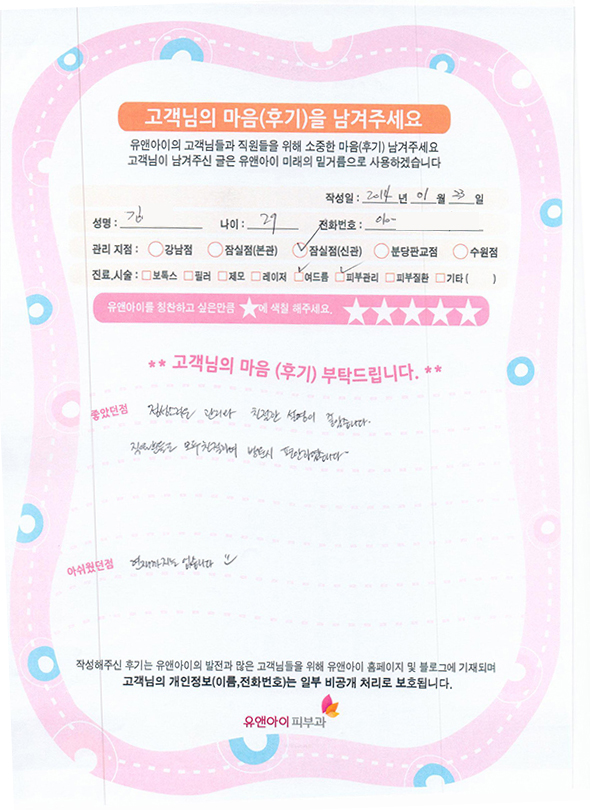 고객님의 마음(후기)을 남겨주세요
유앤아이의 고객님들과 직원들을 위해 소중한 마음(후기) 남겨주세요
고객님이 남겨주신 글은 유앤아이 미래의 밑거름으로 사용하겠습니다
작성일 : 2014 년 01 월 23 일
성명 : 김 나이 : 29 전화번호 : 010-
관리 지점 : 강남점 잠실점(본관) 잠실점(신관) 분당판교점 수원점
진료,시술 : 보톡스 필러 제모 레이저 여드름 피부관리 피부질환 기타 ( )
유앤아이를 칭찬하고 싶은만큼 ★에 색칠 해주세요. ★★★★★
** 고객님의 마음 (후기) 부탁드립니다. **
좋았던점 정성스러운 관리와 친절한 설명이 좋았습니다.
직원분들도 모두 친절하여 방문시 편안하였습니다
아쉬웠던점 현재까지는 없습니다
작성해주신 후기는 유앤아이의 발전과 많은 고객님들을 위해 유앤아이 홈페이지 및 블로그에 기재되며
고객님의 개인정보(이름,전화번호)는 일부 비공개 처리로 보호됩니다.
유앤아이 피부과